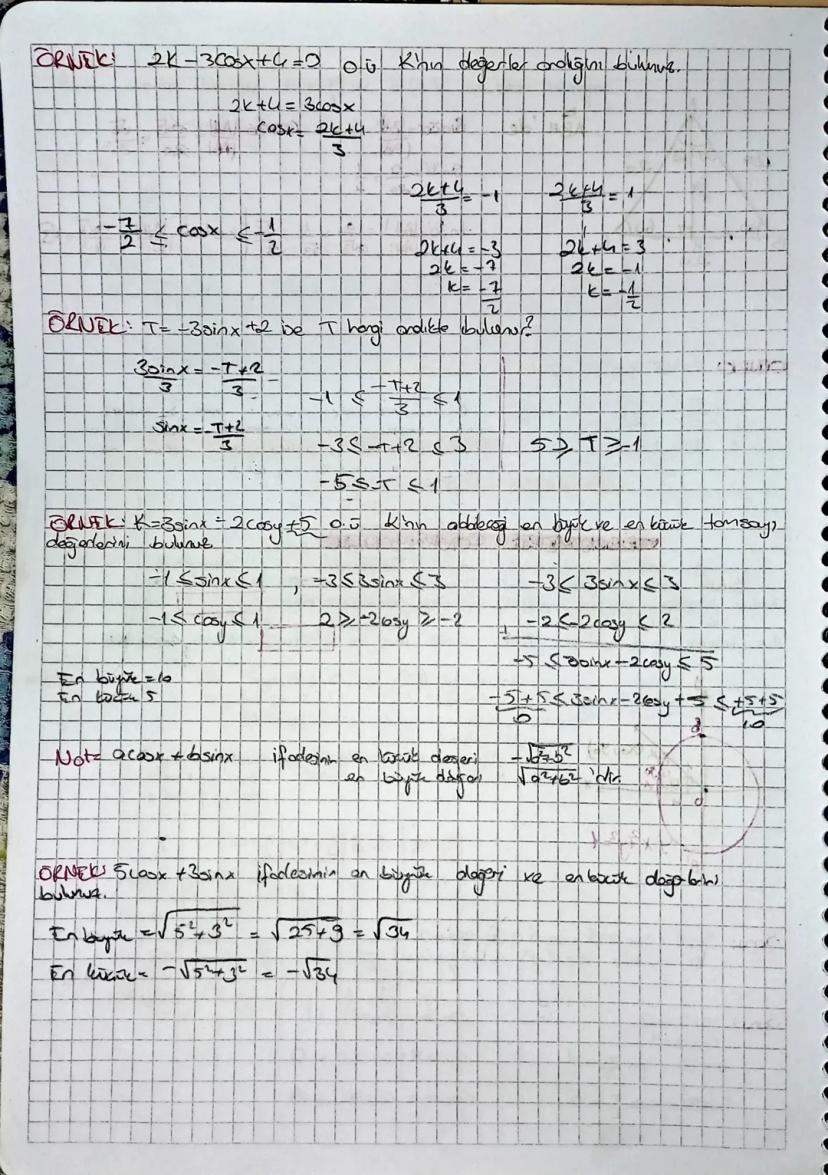 ÖRNEK: 2K - 3cosx + 4 = 0 o.ü K'nın değerler aralığını bulunuz.
2k+4 = 3cosx
cosx = 2k+4/3
2k+4/3 = -1 2k+4/3 = 1
-7/2 ≤ cosx ≤ -1/2
2k+4 = -3 2k+4 = 3
2k = -7 2k = -1
k = -7/2 k = -1/2
ÖRNEK: T = -3sinx + 2 ise T hangi aralıkta bulunur?
3sinx/3 = -T+2/3
-1 ≤ -T+2/3 ≤ 1
sinx = -T+2/3
-3 ≤ -T+2 ≤ 3 5 ≥ T ≥ -1
-5 ≤ -T ≤ 1
ÖRNEK: K = 3sinx - 2cosy + 5 o.ü K'nın alabileceği en büyük ve en küçük tamsayı
değerlerini bulunuz.
-1 ≤ sinx ≤ 1 , -3 ≤ 3sinx ≤ 3 -3 ≤ 3sinx ≤ 3
-1 ≤ cosy ≤ 1 2 ≥ -2cosy ≥ -2 + -2 ≤ -2cosy ≤ 2
-5 ≤ 3sinx - 2cosy ≤ 5
En büyük = 10
En küçük 5
-5+5 ≤ 3sinx - 2cosy + 5 ≤ +5+5
0 10
Not = acosx + bsinx ifadesinin en küçük değeri -√a²+b²
en büyük değeri √a²+b² 'dir.
ÖRNEK: 5cosx + 3sinx ifadesinin en büyük değeri ve en küçük değerlerini
bulunuz.
En büyük = √5²+3² = √25+9 = √34
En küçük = -√5²+3² = -√34